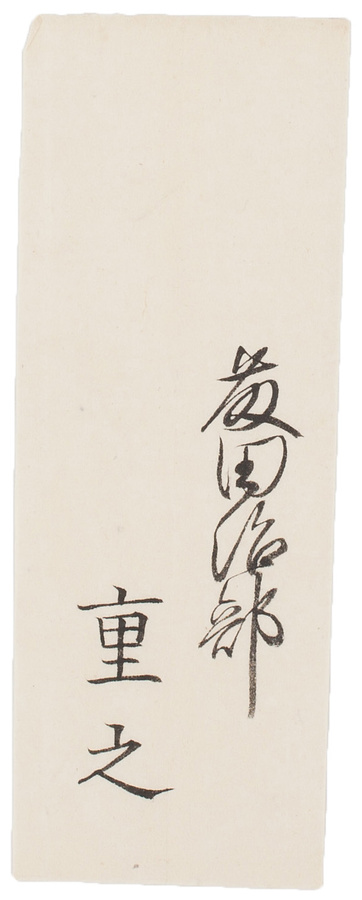 藤田治部
重之